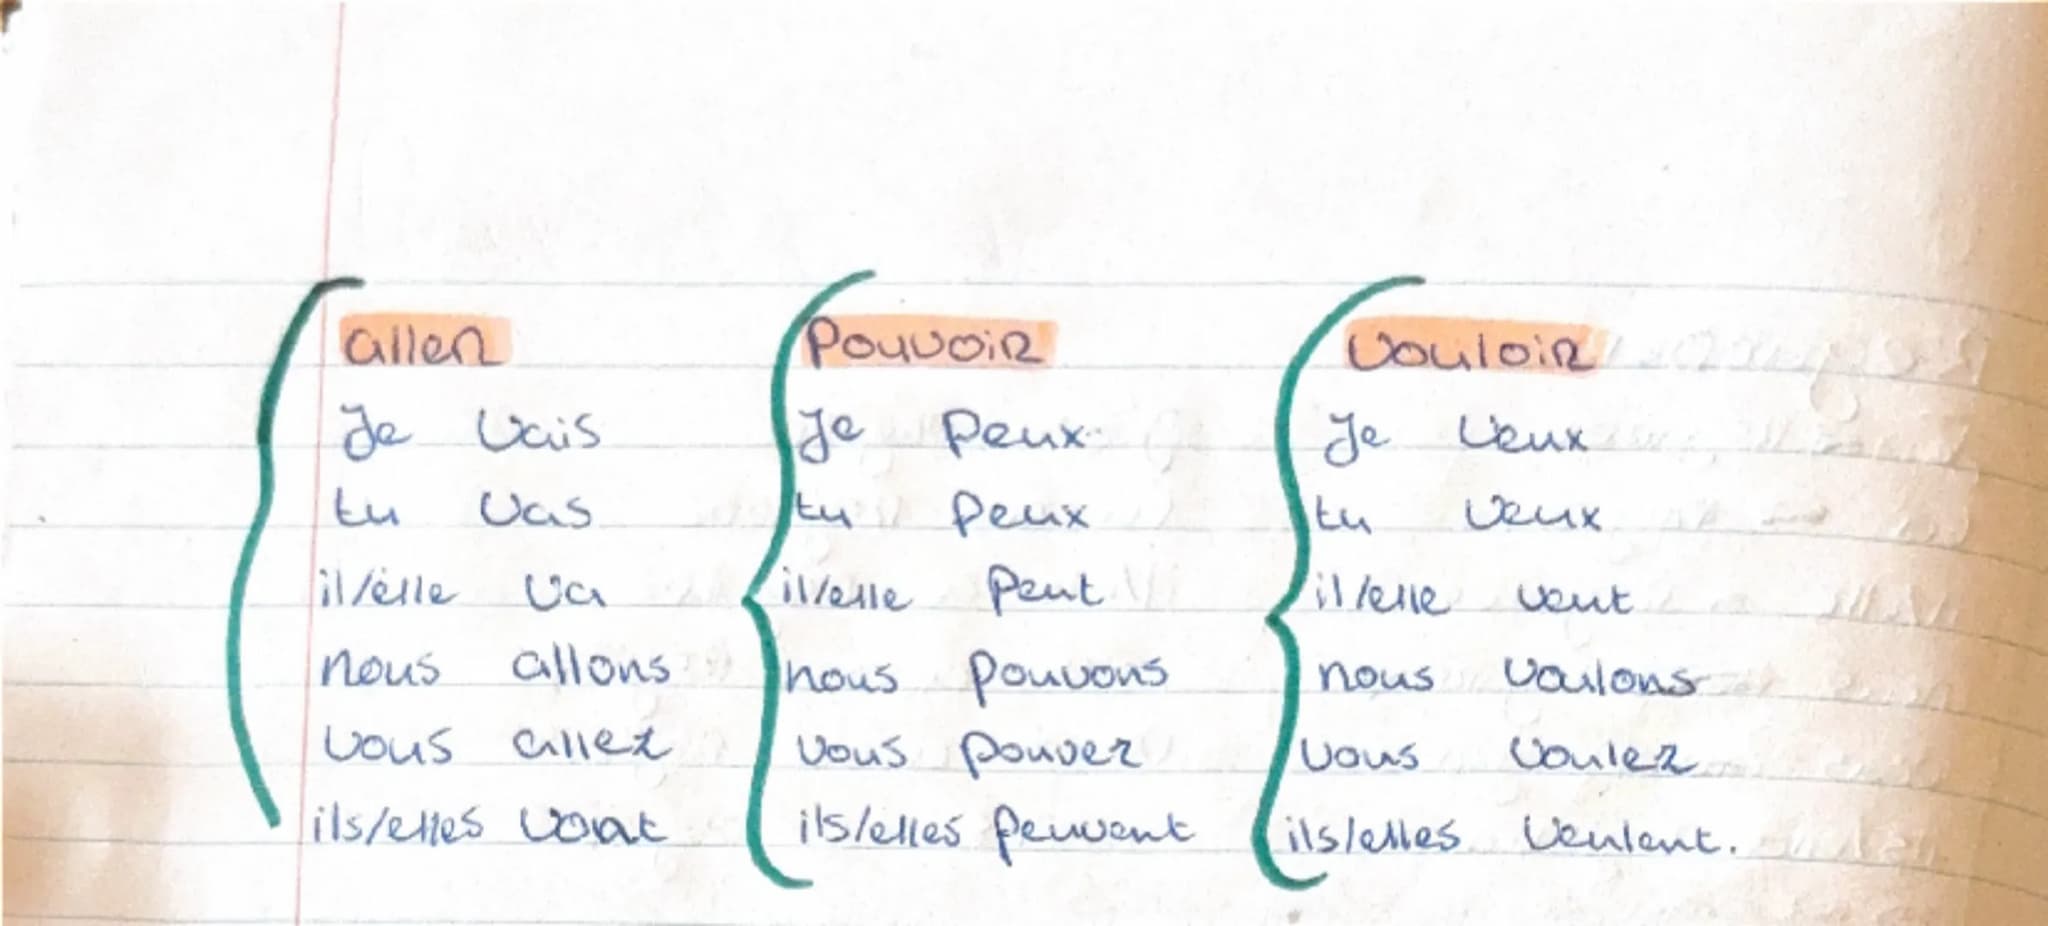 aller Pouvoir Vouloir
Je Vais Je Peux Je Veux
tu Vas tu Peux tu Veux
il/elle Va il/elle Peut il/elle veut
nous allons nous Pouvons nous Voulons
Vous allez Vous pouvez Vous Voulez
ils/elles Vont ils/elles Peuvent ils/elles Veulent.